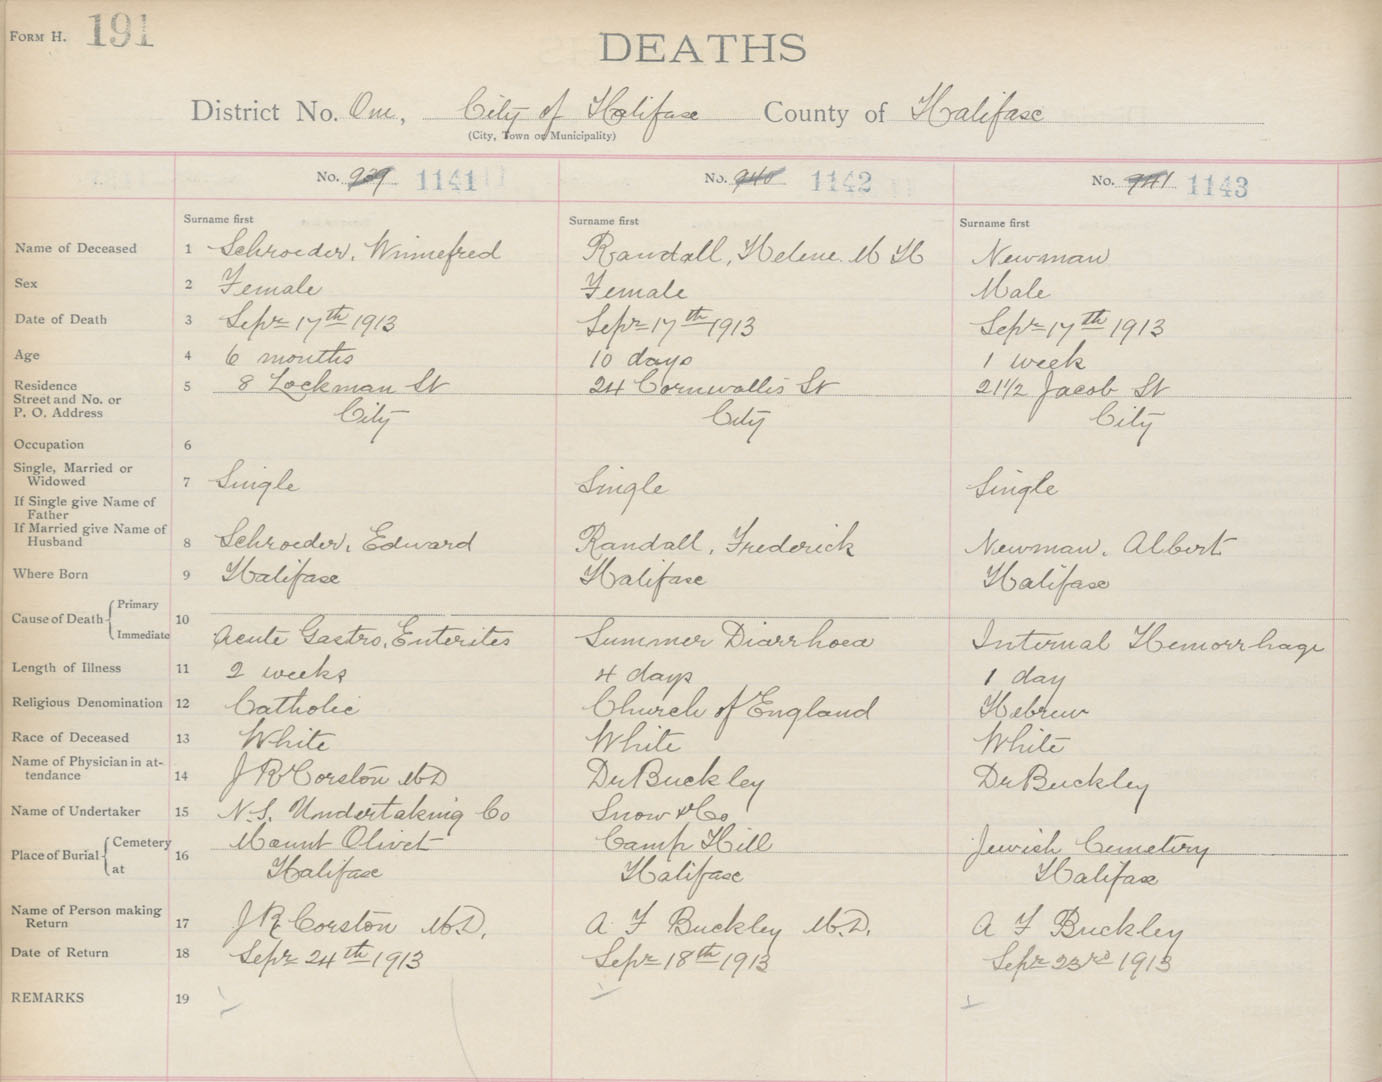 FORM H. 191
DEATHS
District No. One, City of Halifax County of Halifax
(City, Town or Municipality)
No. 939 1141 No. 940 1142 No. 941 1143
Surname first Surname first Surname first
Name of Deceased 1 Schroeder, Winnefred Randall, Helene M H Newman
Sex 2 Female Female Male
Date of Death 3 Sepr 17th 1913 Sepr 17th 1913 Sepr 17th 1913
Age 4 6 months 10 days 1 week
Residence 5 8 Lockman St 24 Cornwallis St 21 1/2 Jacob St
Street and No. or
P. O. Address City City City
Occupation 6
Single, Married or
Widowed 7 Single Single Single
If Single give Name of
Father
If Married give Name of
Husband 8 Schroeder, Edward Randall, Frederick Newman, Albert
Where Born 9 Halifax Halifax Halifax
Cause of Death Primary 10
Immediate Acute Gastro, Enterites Summer Diarrhoea Internal Hemorrhage
Length of Illness 11 2 weeks 4 days 1 day
Religious Denomination 12 Catholic Church of England Hebrew
Race of Deceased 13 White White White
Name of Physician in at-
tendance 14 J R Corston M D Dr Buckley Dr Buckley
Name of Undertaker 15 N.S. Undertaking Co Snow & Co
Place of Burial Cemetery 16 Mount Olivet Camp Hill Jewish Cemetery
at Halifax Halifax Halifax
Name of Person making
Return 17 J R Corston M.D. A F Buckley M.D. A F Buckley
Date of Return 18 Sepr 24th 1913 Sepr 18th 1913 Sepr 23rd 1913
REMARKS 19